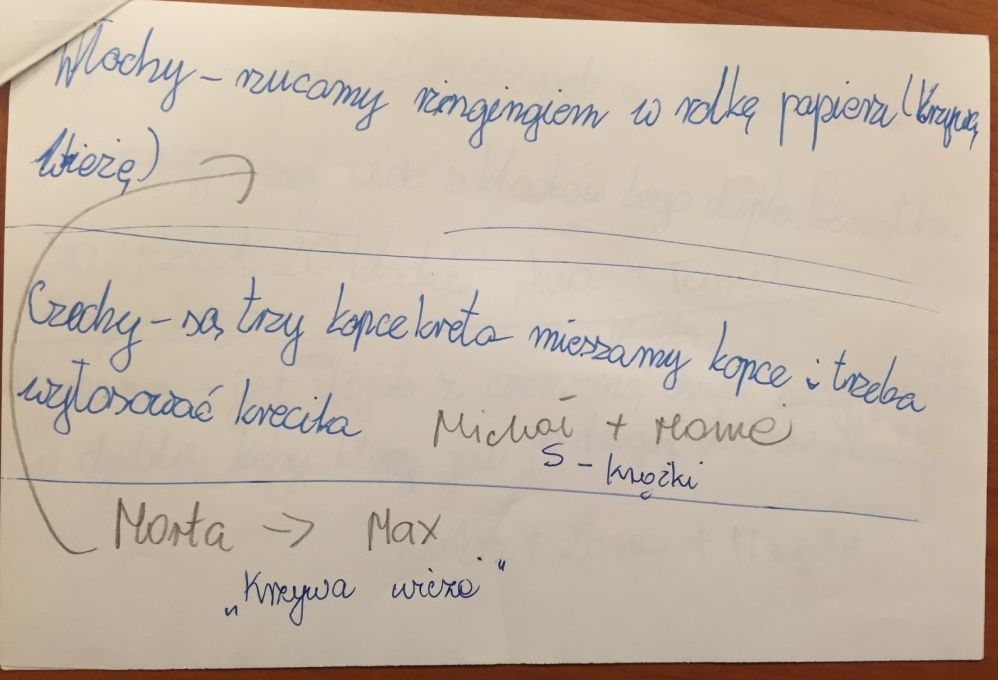 Włochy – rzucamy ringingiem w rolkę papieru (Krzywą
Wieżę)
Czechy – są trzy kopce kreta mieszamy kopce i trzeba
wylosować krecika
Michał + Mamé
S – krążki
Marta → Max
„Krzywa wieża"